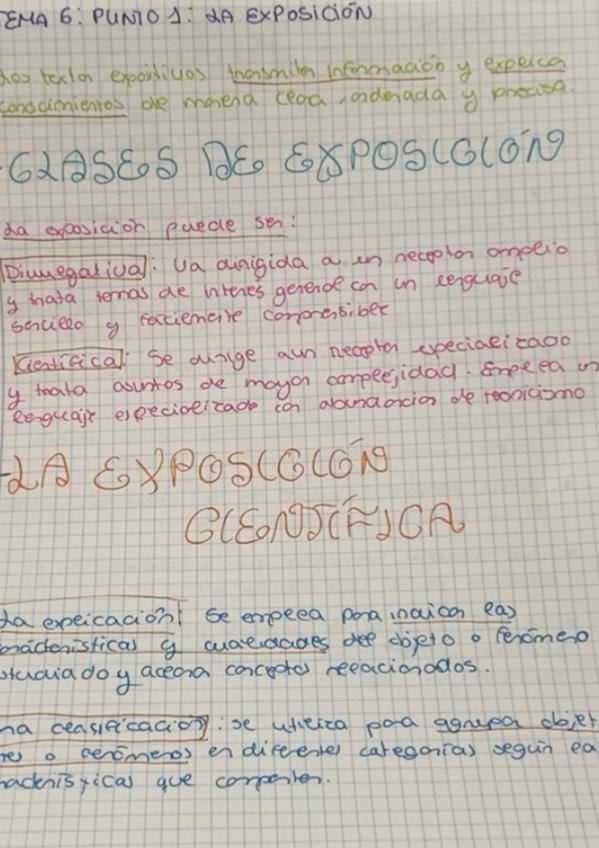 EMA 6: PUNTO 1: LA EXPOSICIÓN
Los textos expositivos transmiten información y explica
conocimientos de manera clara, ordenada y precisa.
-CLASES DE EXPOSICIÓN
La exposición puede ser:
Divulgativa: Va dirigida a un receptor amplio
y trata temas de interés general con un lenguaje
sencillo y facilmente comprensible
Científica: Se dirige a un receptor especializado
y trata asuntos de mayor complejidad. Emplea un
lenguaje especializado con abundancia de tecnicismo
-LA EXPOSICIÓN
CIENTÍFICA
La explicación: Se emplea para indicar las
características y cualidades del objeto o fenómeno
studiado y aclara conceptos relacionados.
na clasificación: se utiliza para agrupar objet
res o fenómenos en diferentes categorías según la
racterísticas que comparten.